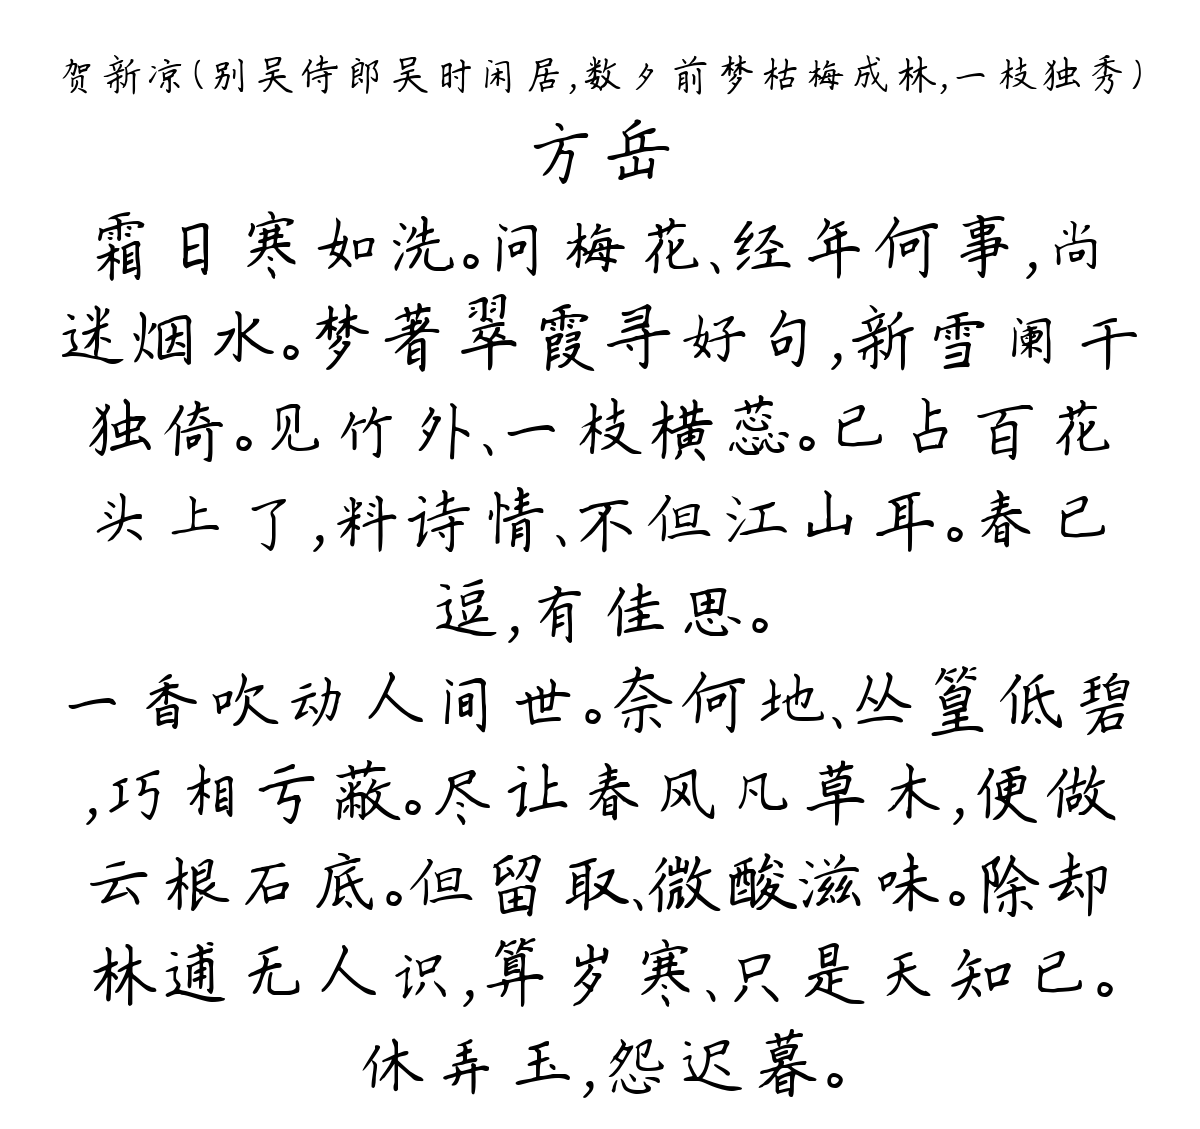 贺新凉(别吴侍郎吴时闲居,数夕前梦枯梅成林,一枝独秀)
方岳
霜日寒如洗。问梅花、经年何事,尚
迷烟水。梦著翠霞寻好句,新雪阑干
独倚。见竹外、一枝横蕊。已占百花
头上了,料诗情、不但江山耳。春已
逗,有佳思。
一香吹动人间世。奈何地、丛篁低碧
,巧相亏蔽。尽让春风凡草木,便做
云根石底。但留取、微酸滋味。除却
林逋无人识,算岁寒、只是天知已。
休弄玉,怨迟暮。